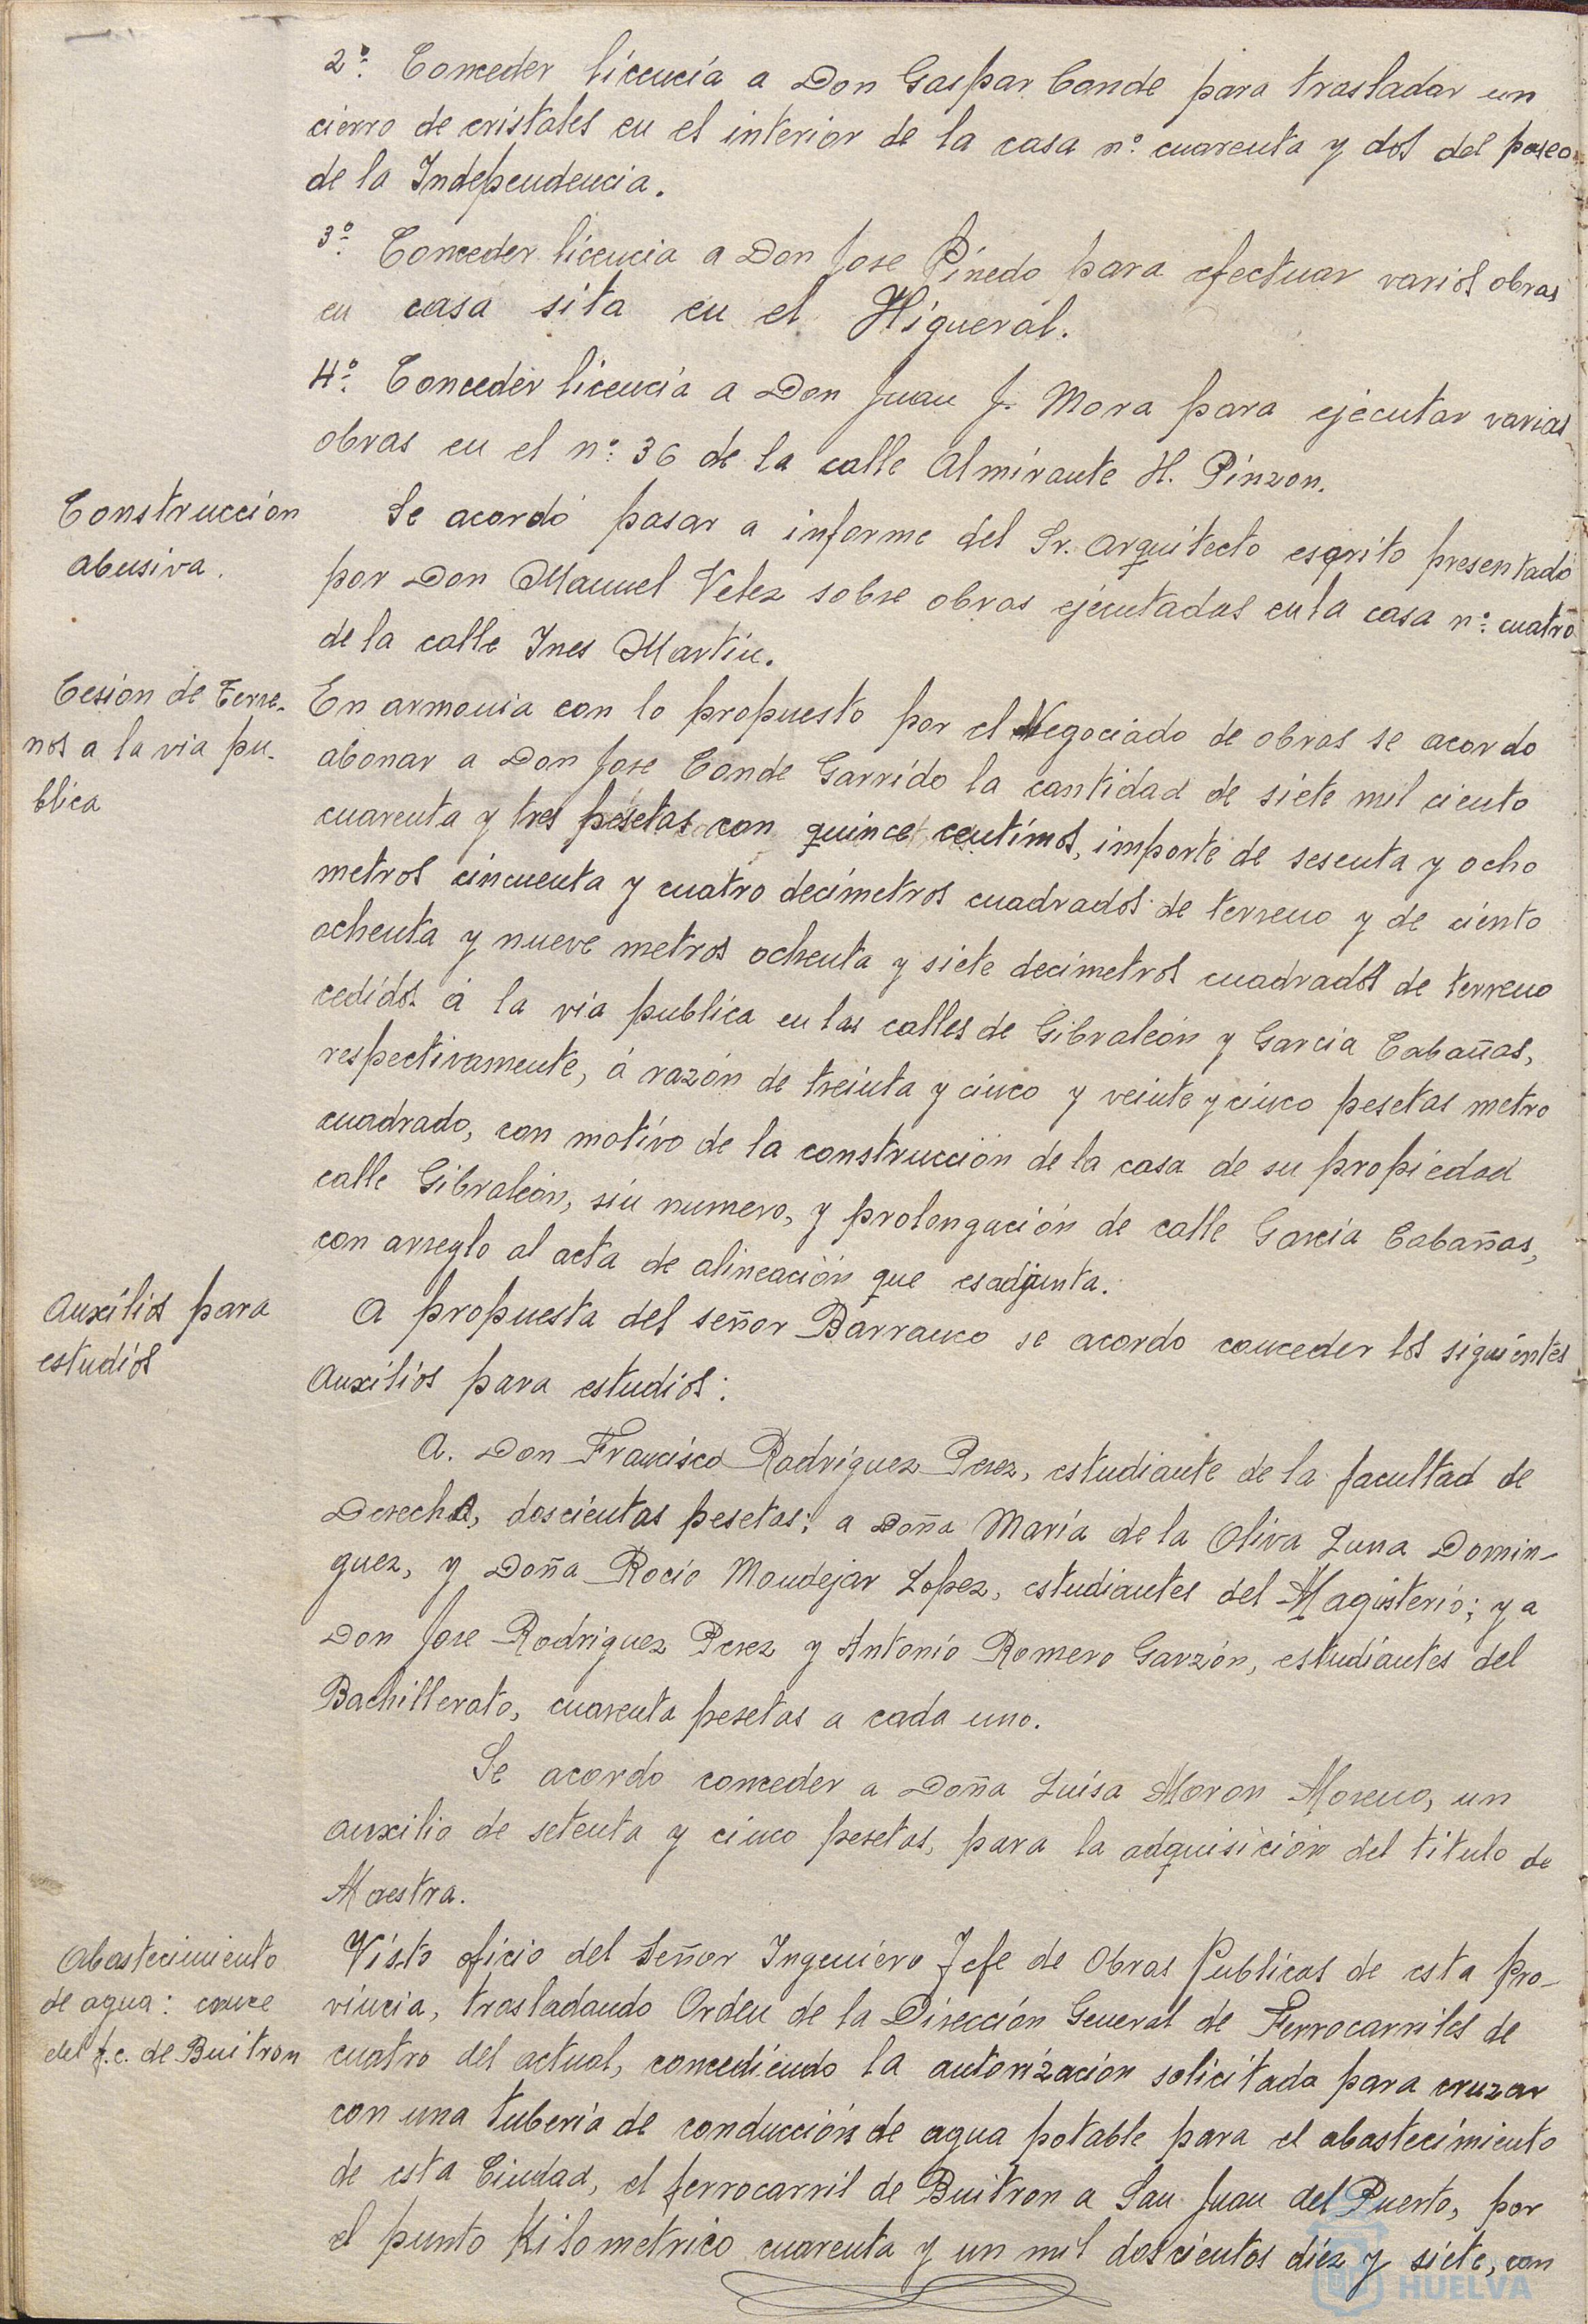 2º. Conceder licencia a Don Gaspar Conde para trasladar un
cierro de cristales en el interior de la casa nº. cuarenta y dos del paseo
de la Independencia.
3º. Conceder licencia a Don Jose Pinedo para efectuar varios obras
en casa sita en el Higueral.
4º. Conceder licencia a Don Juan J. Mora para ejecutar varias
obras en el nº. 36 de la calle Almirante H. Pinzon.
Construcción
abusiva.
Se acordó pasar a informe del Sr. Arquitecto esqrito presentado
por Don Manuel Velez sobre obras ejecutadas en la casa nº. cuatro
de la calle Ines Martin.
Cesion de Terre-
nos a la via pu-
blica
En armonia con lo propuesto por el Negociado de obras se acordo
abonar a Don Jose Conde Garrido la cantidad de siete mil ciento
cuarenta y tres pesetas con quince centimos, importe de sesenta y ocho
metros cincuenta y cuatro decimetros cuadrados de terreno y de ciento
ochenta y nueve metros ochenta y siete decimetros cuadrados de terreno
cedidos á la via publica en las calles de Gibraleón y Garcia Cabañas,
respectivamente, á razón de treinta y cinco y veinte y cinco pesetas metro
cuadrado, con motivo de la construcción de la casa de su propiedad
calle Gibraleón, sin numero, y prolongación de calle Garcia Cabañas,
con arreglo al acta de alineación que es adjunta.
Auxilios para
estudios
A propuesta del señor Barranco se acordo conceder los siguientes
Auxilios para estudios:
A. Don Francisco Rodriguez Perez, estudiante de la facultad de
Derecho, doscientas pesetas; a Doña María de la Oliva Luna Domin-
guez, y Doña Rocio Mondejar Lopez, estudiantes del Magisterio; y a
Don Jose Rodriguez Perez y Antonio Romero Garzón, estudiantes del
Bachillerato, cuarenta pesetas a cada uno.
Se acordo conceder a Doña Luisa Moron Moreno, un
auxilio de setenta y cinco pesetas, para la adquisición del titulo de
Maestra.
Abastecimiento
de agua: cruce
del f.c. de Buitron
Visto oficio del Señor Ingeniero Jefe de Obras Publicas de esta pro-
vincia, trasladando Orden de la Dirección General de Ferrocarriles de
cuatro del actual, concediendo la autorización solicitada para cruzar
con una tubería de conducción de agua potable para el abastecimiento
de esta Ciudad, el ferrocarril de Buitron a San Juan del Puerto, por
el punto Kilometrico cuarenta y un mil doscientos diez y siete, con
HUELVA